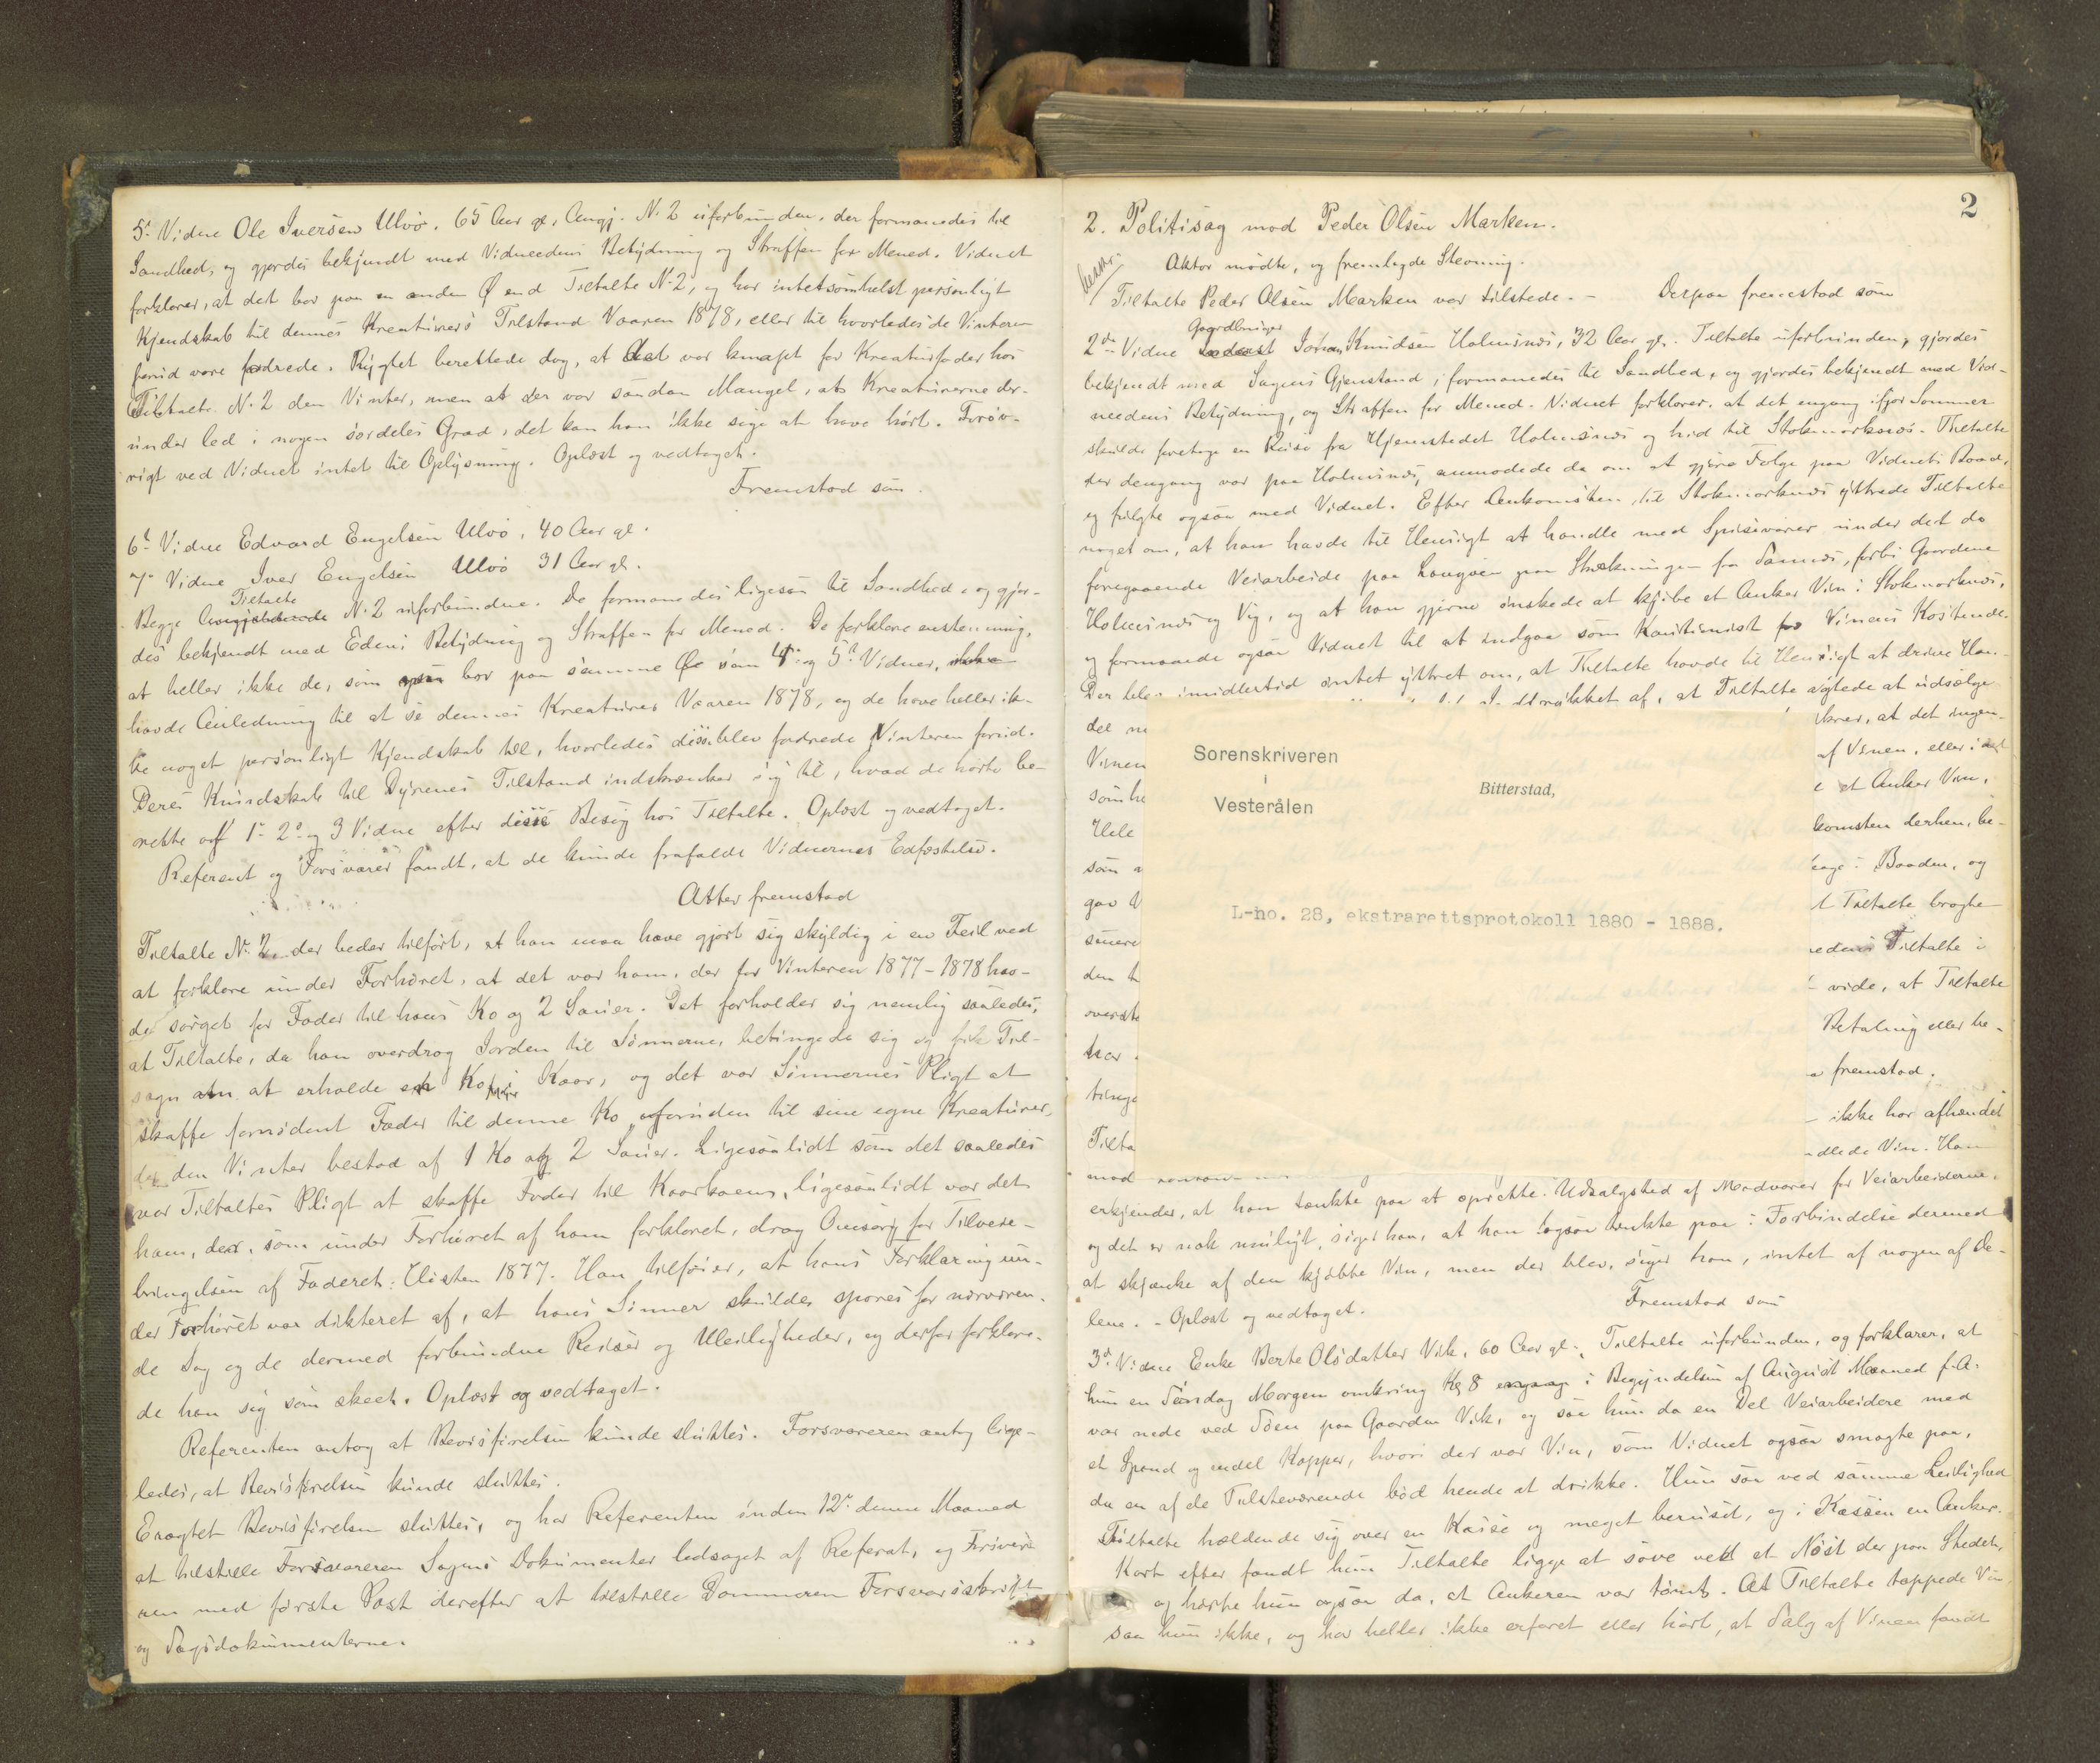 5t Vidne Ole Iversen Ulvø. 65 Aar gl., Angj. N. 2 uforbunden. der formanedes til
Sandhed, og gjordes bekjendt med Vidneedens Betydning og Straffen for Mened. Vidnet
forklarer, at det bor paa en anden Ø end Tiltalte N. 2, og har intetsomhelst personligt
Kjendskab til dennes Kreaturers Tilstand Vaaren 1878, eller til hvorledes de Vinteren
forud vare fodrede. Rygtet berettede dog, at det var knapt for Kreaturfoder hos
Tiltalte N. 2 den Vinter, men at der var saadan Mangel, at Kreaturerne der-
under led i nogen særdeles Grad, det kan han ikke sige at have hørt. Forøv-
rigt ved Vidnet intet til Oplysning. Oplæst og vedtaget.
Fremstod som
6t Vidne Edvard Engelsen Ulvø, 40 Aar gl.
7de Vidne Iver Engelsen Ulvø 31 Aar gl.
Begge Tiltalte N. 2 uforbundne. De formanedes ligesaa til Sandhed, og gjor-
des bekjendt med Edens Betydning og Straffen for Mened. De forklare enstemmig,
at heller ikke de, som bor paa samme Ø som 4de og 5te Vidner,
havde Anledning til at se dennes Kreaturer Vaaren 1878, og de have heller ik-
ke noget personligt Kjendskab til, hvorledes disse blev fodrede Vinteren forud.
Deres Kundskab til Dyrenes Tilstand indskrænker sig til, hvad de hørte be-
rette af 1ste 2det og 3 Vidne efter disses Besøg hos Tiltalte. Oplæst og vedtaget.
Referent og Forsvarer fandt, at de kunde frafalde Vidnernes Edfæstelse.
Atter fremstod
Tiltalte N. 2. der beder tilført, at han maa have gjort sig skyldig i en Feil ved
at forklare under Forhøret, at det var ham, der for Vinteren 1877-1878 hav-
de sørget for Foder til hans Ko og 2 Sauer. Det forholder sig nemlig saaledes,
at Tiltalte, da han overdrog Jorden til Sønnerne, betingede sig og fik Til-
sagn om at erholde en Ko i Kaar, og det var Sønnernes Pligt at
skaffe fornødent Foder til denne Ko, foruden til sine egne Kreaturer,
der den Vinter bestod af 1 Ko og 2 Sauer. Ligesaalidt som det saaledes
var Tiltaltes Pligt at skaffe Foder til Kaarkoen, ligesaalidt var det
ham, der, som under Forhøret af ham forklaret, drog Omsorg for Tilveie-
bringelsen af Foderet Høsten 1877. Han tilføier, at hans Forklaring un-
der Forhøret var dikteret af, at hans Sønner skulde spares for nærværen-
de Sag og de dermed forbundne Reiser og Uleiligheder, og derfor forklare-
de han sig som skeet. Oplæst og vedtaget.
Referenten antog at Bevisførelsen kunde sluttes. Forsvareren antog lige-
ledes, at Bevisførelsen kunde sluttes.
Eragtet Bevisførelsen sluttes, og har Referenten inden 12te denne Maaned
at tilstille Forsvareren Sagens Dokumenter ledsaget af Referat, og Forsvare-
ren med første Post derefter at tilstille Dommeren Forsvarsskrift
og Sagsdokumenterne.
2
2. Politisag mod Peder Olsen Marken.
Aktor mødte, og fremlagde Stevning.
Tiltalte Peder Olsen Marken var tilstede. - Derpaa fremstod som
2det Vidne Gaardbruger Johan Knudsen Holmsnes, 32 Aar gl. Tiltalte uforbunden, gjordes
bekjendt med Sagens Gjenstand, formanedes til Sandhed, og gjordes bekjendt med Vid-
needens Betydning, og Straffen for Mened. Vidnet forklarer, at det engang ifjor Sommer
skulde foretage en Reise fra Hjemstedet Holmsnes og hid til Stokmarknes. Tiltalte
der dengang var paa Holmsnes, anmodede da om at gjøre Følge paa Vidnets Baad,
og fulgte ogsaa med Vidnet. Efter Ankomsten til Stokmarknes ytrede Tiltalte
noget om, at han havde til Hensigt at handle med Spisevarer under det da
foregaaende Veiarbeide paa Langøen paa Strækningen fra Sannes, forbi Gaardene
Holmsnes og Vig, og at han gjerne ønskede at kjøbe et Anker Vin i Stokmarknes,
og formaaede ogsaa Vidnet til at indgaa som Kautionist for Vinens Kostende.
Der blev imidlertid intet yttret om, at Tiltalte havde til Hensigt at drive Han-
del af, at Tiltalte agtede at udsælge
Vinen ikrer, at det ingen-
somhe af Vinen, eller i det
Hele et Anker Vin,
som komsten derhen, be-
gav Baaden, og
senere Tiltalte bragte
den Tiltalte i
overste vide, at Tiltalte
Betaling eller be-
tinge fremstod.
Tilta ikke har afhændet
mod dlede Vin. Han
Sorenskriveren
i
Vesterålen
Bitterstad,
L-no. 28, ekstrarettsprotokoll 1880 - 1888.
erkjender, at han tænkte paa at oprette Udsalgsted af Madvarer for Veiarbeiderne,
og det er nok muligt, siger han, at han ogsaa tænkte paa i Forbindelse dermed
at skjænke af den kjøbte Vin, men der blev, siger han, intet af nogen af De-
lene. - Oplæst og vedtaget.
Fremstod som
3de Vidne Enke Berte Olsdatter Vik, 60 Aar gl., Tiltalte uforbunden, og forklarer, at
hun en Søndag Morgen omkring Kl 8 i Begyndelsen af August Maaned f. A.
var nede ved Søen paa Gaarden Vik, og saa hun da en Del Veiarbeidere med
et Spand og endel Kopper, hvori der var Vin, som Vidnet ogsaa smagte paa,
da en af de Tilstedeværende bød hende at drikke. Hun saa ved samme Leilighed
Tiltalte hældende sig over en Kasse og meget beruset, og i Kassen en Anker.
Kort efter fandt hun Tiltalte ligge at sove ved et Nøst der paa Stedet,
og hørte hun ogsaa da, at Ankeren var tømt. At Tiltalte tappede Vin
saa hun ikke, og har heller ikke erfaret eller hørt, at Salg af Vinen fandt